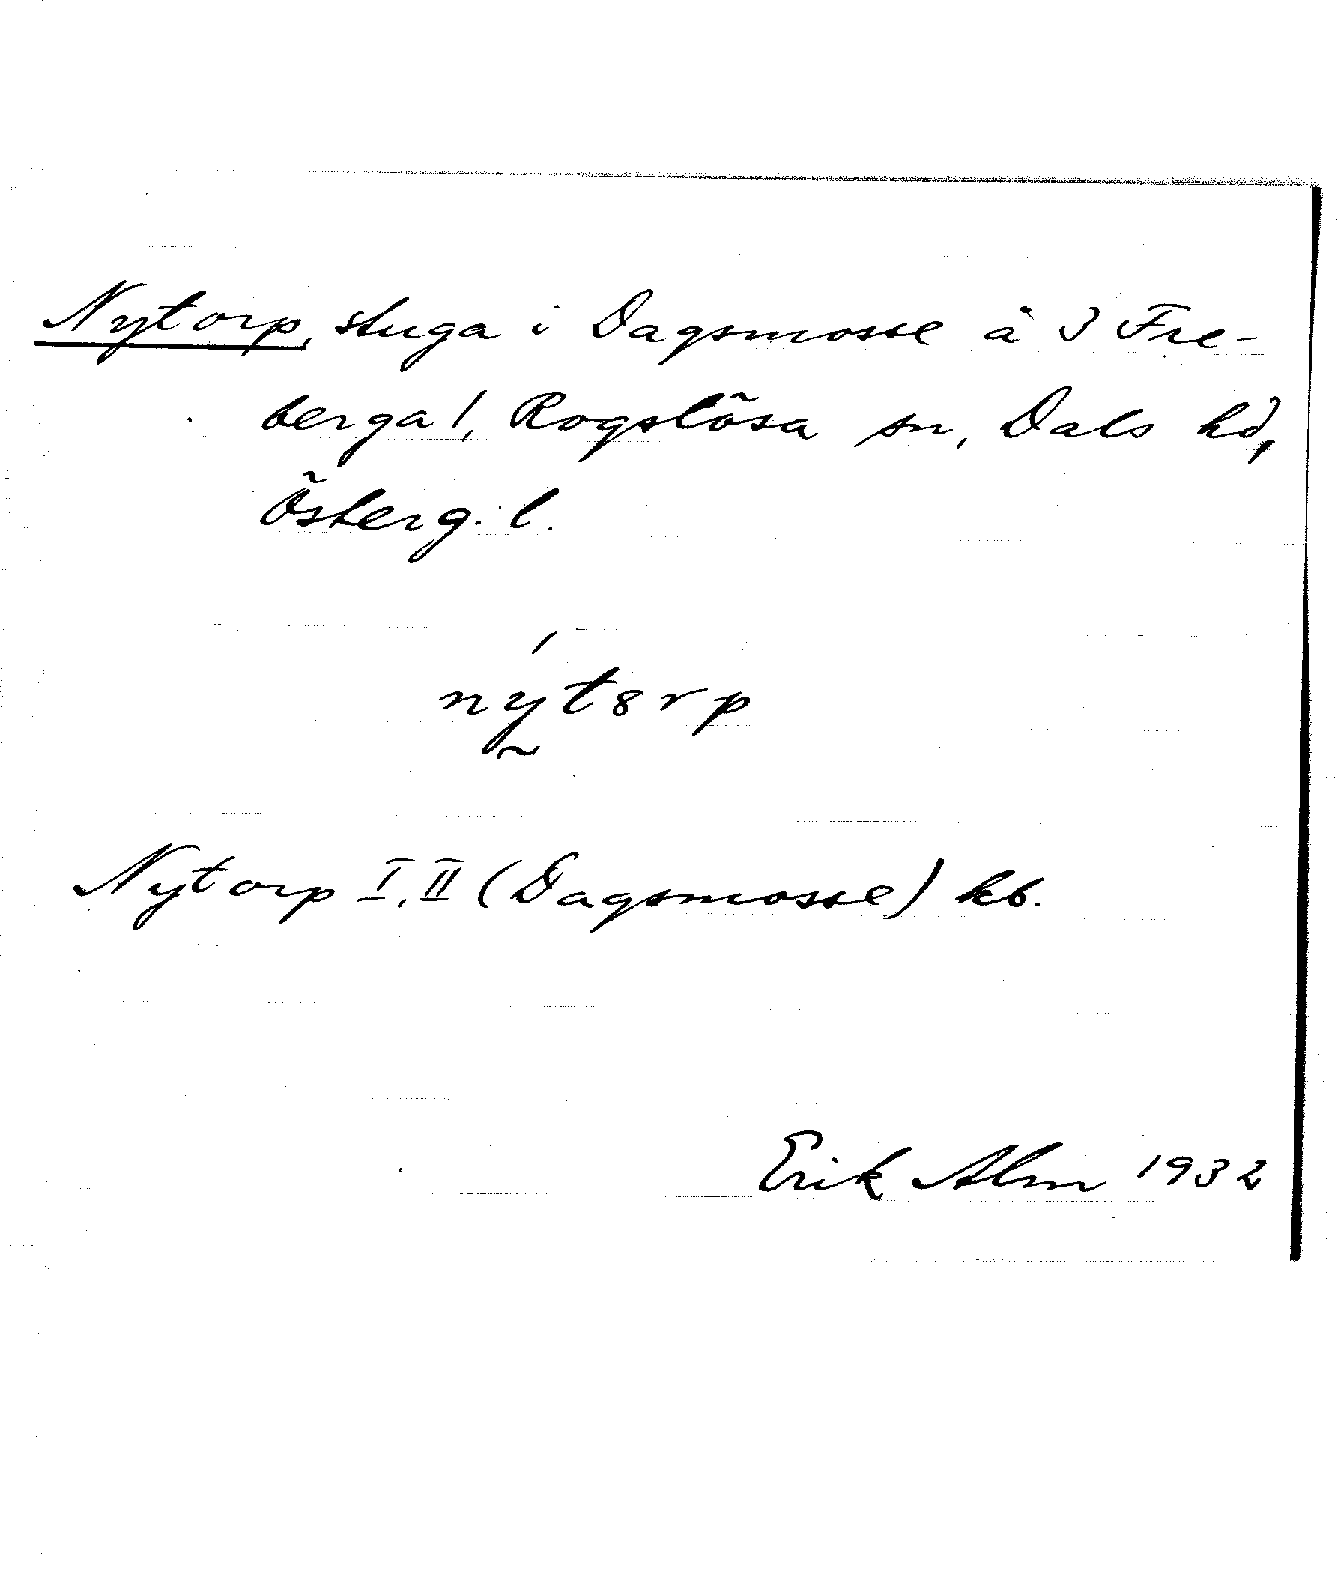 Nytorp, stuga i Dagsmosse å 3 Fre-
berga /, Rogslösa sn, Dals hd,
Österg. l.
nýtórp
Nytorp I, II (Dagsmosse) kb.
Erik Alm 1932